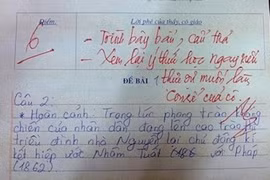 Điểm
Lời phê của thầy, cô giáo
6
- Trình bày bẩn, cẩu thả
- Xem lại ý thức học ngay nếu
thừa ơn muốn làm
Con rể của cô.
ĐỀ BÀI
Câu 2:
* Hoàn cảnh: Trong lúc phong trào kháng
chiến của nhân dân đang lên cao
triều đình nhà Nguyễn lại chủ động kí
kết hiệp ước Nhâm Tuất với Pháp
(1862)